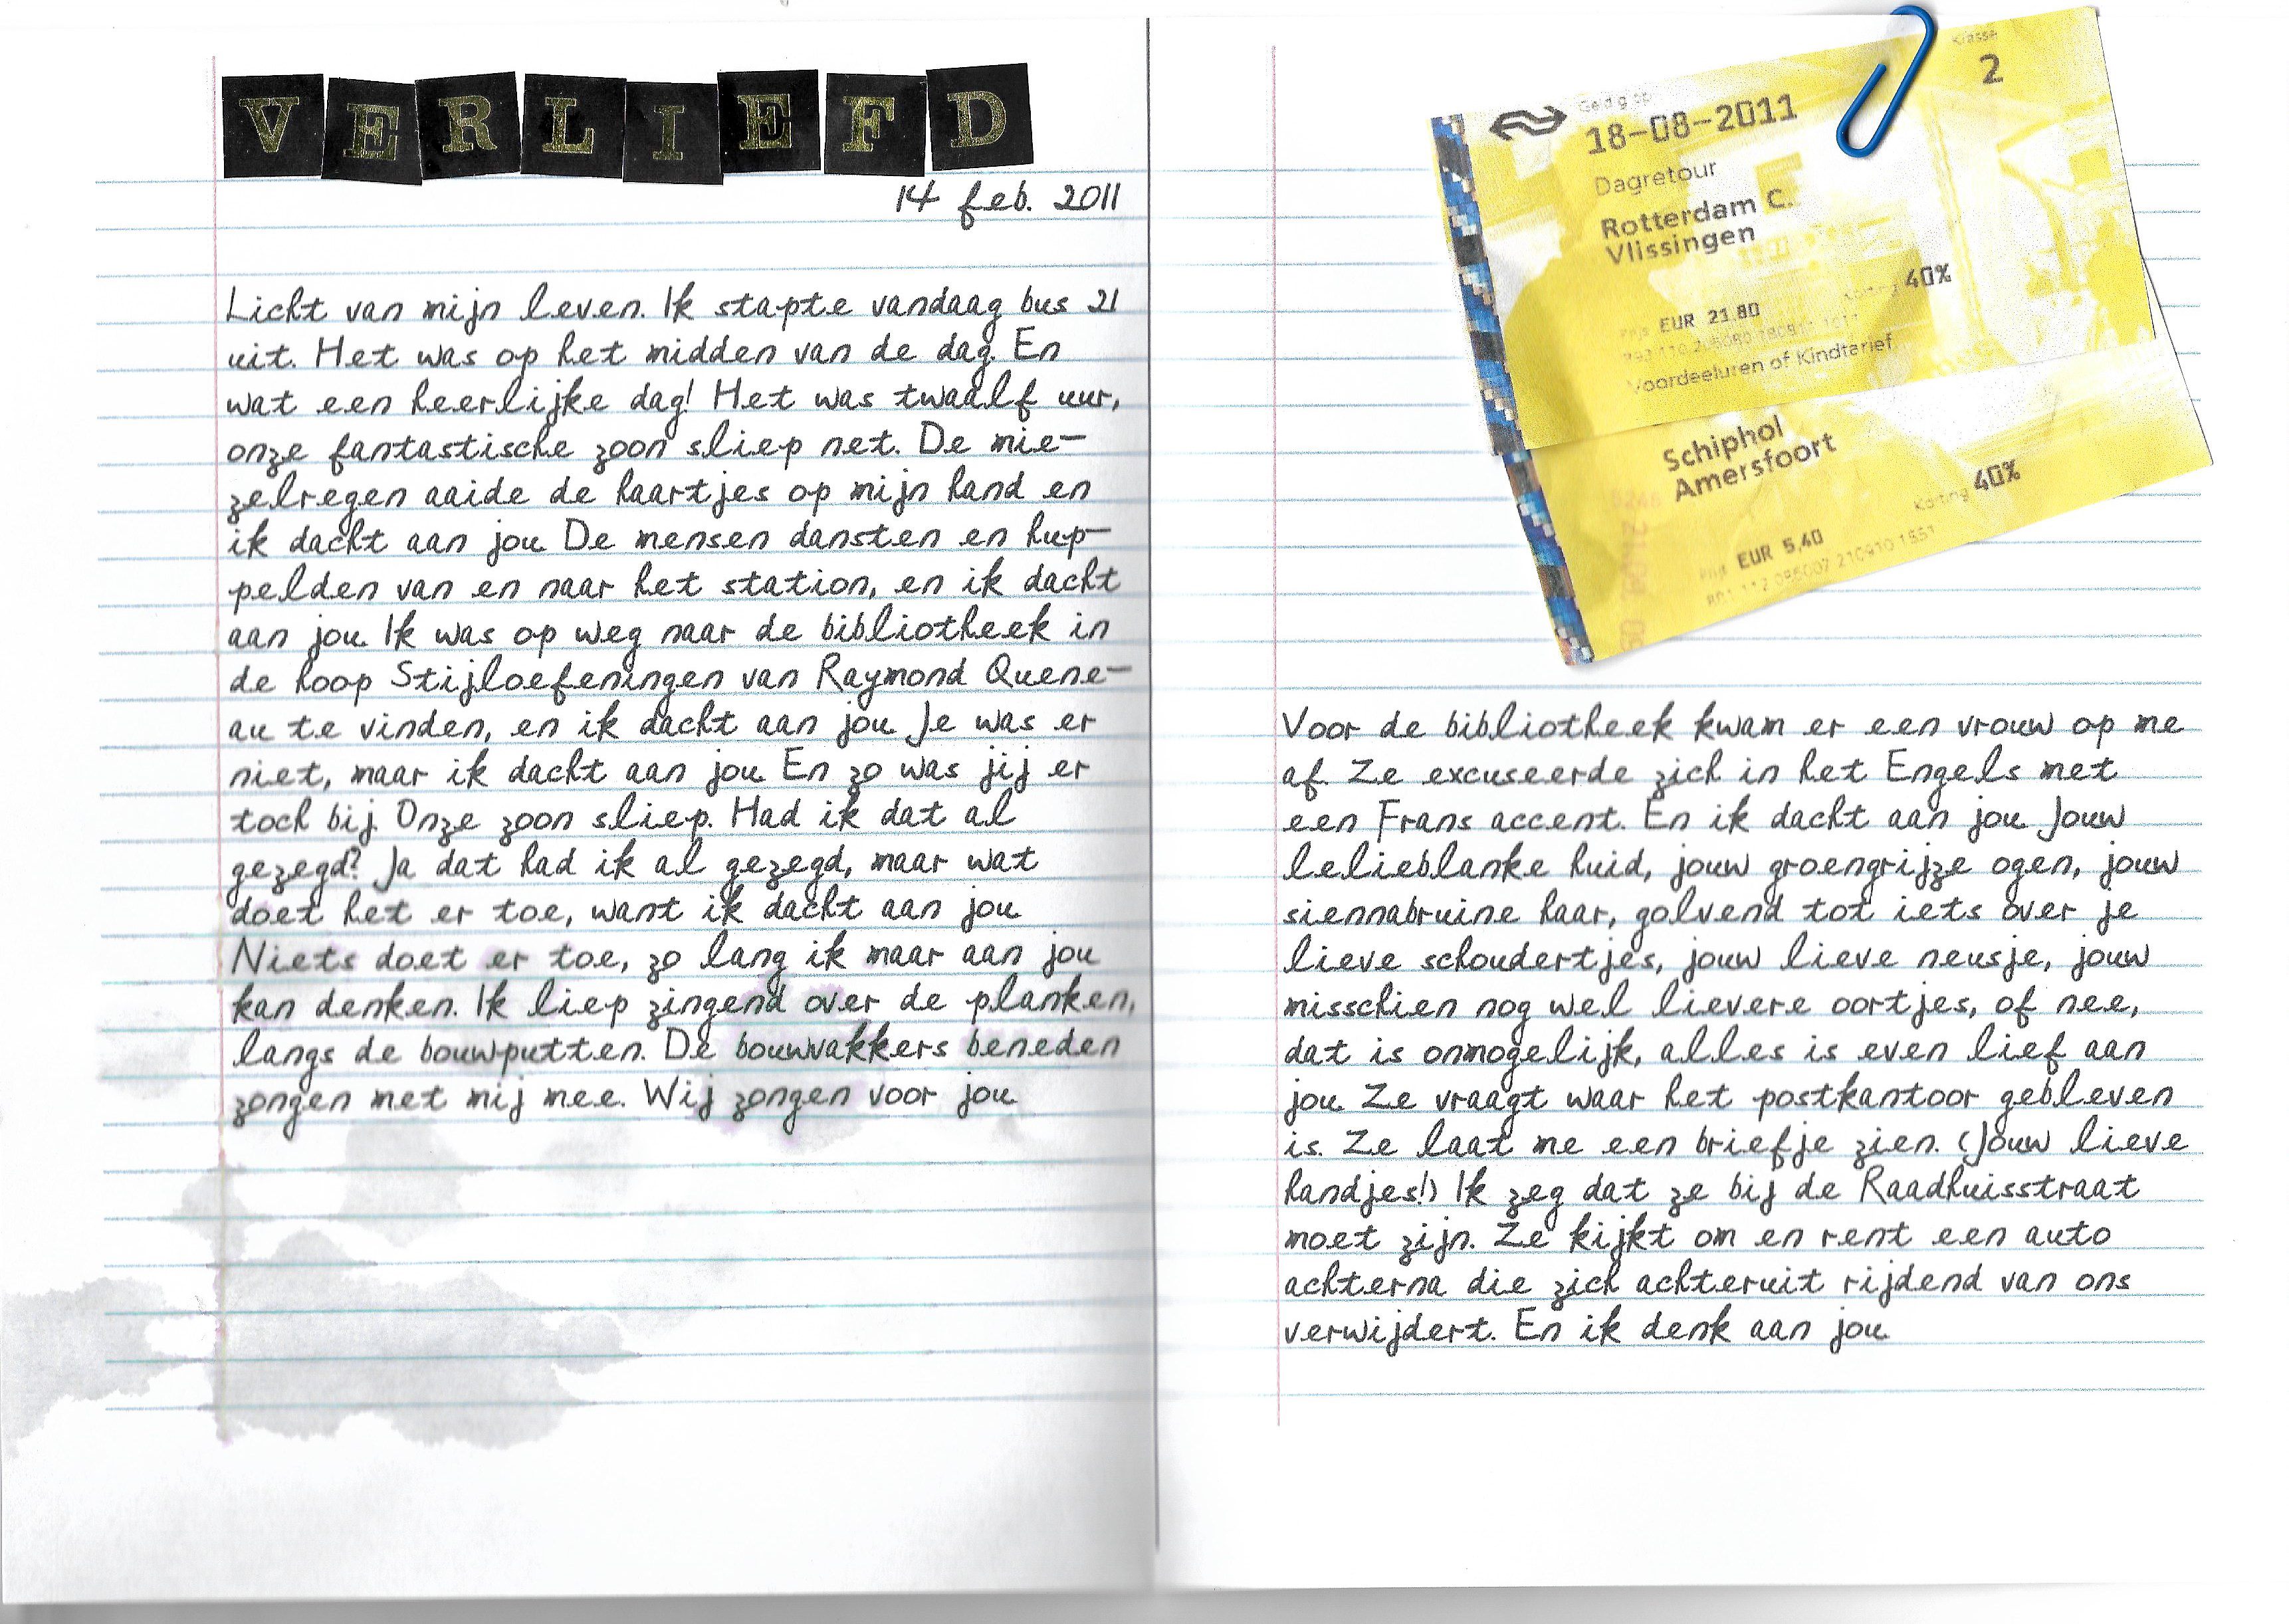 VERLIEFD
14 feb. 2011
Licht van mijn leven. Ik stapte vandaag bus 21
uit. Het was op het midden van de dag. En
wat een heerlijke dag! Het was twaalf uur,
onze fantastische zoon sliep net. De mie-
zelregen aaide de haartjes op mijn hand en
ik dacht aan jou. De mensen dansten en hup-
pelden van en naar het station, en ik dacht
aan jou. Ik was op weg naar de bibliotheek in
de hoop Stijloefeningen van Raymond Quene-
au te vinden, en ik dacht aan jou. Je was er
niet, maar ik dacht aan jou. En zo was jij er
toch bij. Onze zoon sliep. Had ik dat al
gezegd? Ja dat had ik al gezegd, maar wat
doet het er toe, want ik dacht aan jou.
Niets doet er toe, zo lang ik maar aan jou
kan denken. Ik liep zingend over de planken,
langs de bouwputten. De bouwvakkers beneden
zongen met mij mee. Wij zongen voor jou.
Klasse
2
Geldig op
18-08-2011
Dagretour
Rotterdam C.
Vlissingen
Korting 40%
Prijs EUR 21,80
Voordeeluren of Kindtarief
Schiphol
Amersfoort
Korting 40%
Prijs EUR 5,40
Voor de bibliotheek kwam er een vrouw op me
af. Ze excuseerde zich in het Engels met
een Frans accent. En ik dacht aan jou. Jouw
lelieblanke huid, jouw groengrijze ogen, jouw
siennabruine haar, golvend tot iets over je
lieve schoudertjes, jouw lieve neusje, jouw
misschien nog wel lievere oortjes, of nee,
dat is onmogelijk, alles is even lief aan
jou. Ze vraagt waar het postkantoor gebleven
is. Ze laat me een briefje zien. (Jouw lieve
handjes!) Ik zeg dat ze bij de Raadhuisstraat
moet zijn. Ze kijkt om en rent een auto
achterna die zich achteruit rijdend van ons
verwijdert. En ik denk aan jou.